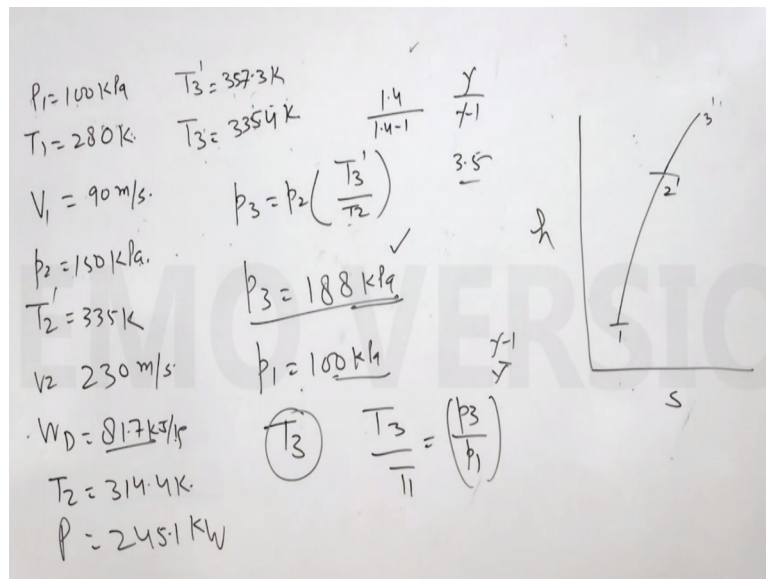 P1 = 100 kPa
T1 = 280K.
V1 = 90 m/s.
p2 = 150 kPa.
T2' = 335K
V2 230 m/s.
WD = 81.7 kJ/kg
T2 = 314.4K.
P = 245.1 KW
T3' = 357.3K
T3 = 335.4K
p3 = p2 (T3'/T2)
p3 = 188 kPa ✓
p1 = 100 kPa
T3
T3/T1 = (p3/p1)
γ-1/γ
1.4/1.4-1
γ/γ-1
3.5
h
3'
2'
1
S
EMO VERSIO